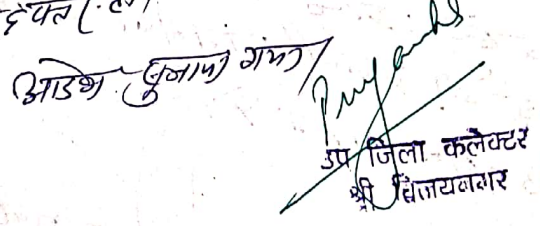 आदेश सुनाया गया
उप जिला कलेक्टर
श्री विजयनगर